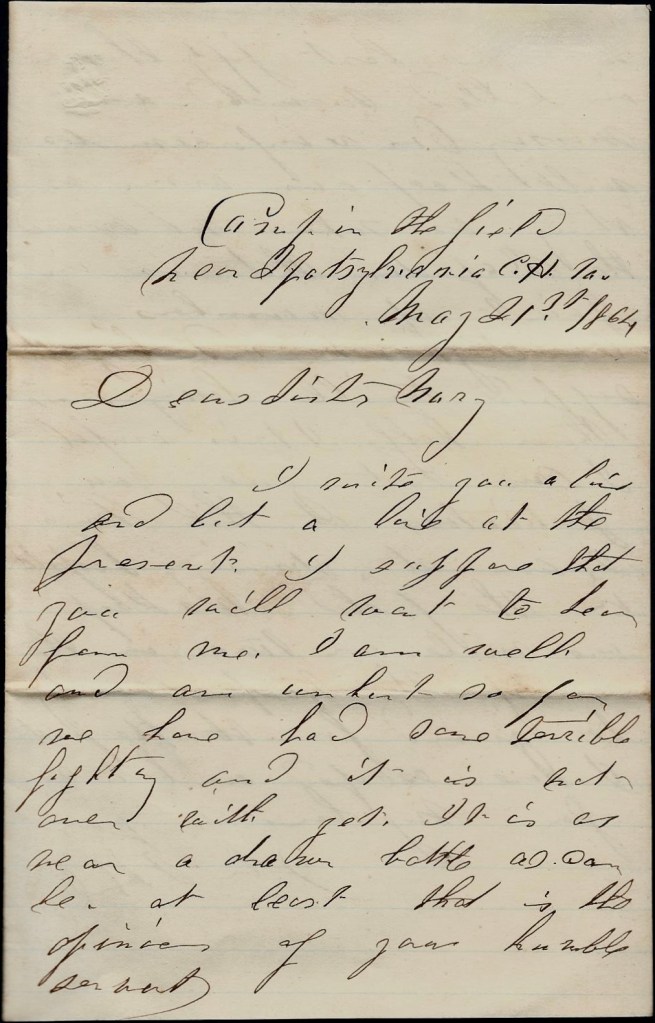 Camp in the field
near Spotsylvania C.H. Va.
May 21st 1864
Dear Sister Mary
I write you a line
and but a line at the
present. I suppose that
you will want to hear
from me. I am well
and am unhurt so far
we have had some terrible
fighting and it is not
over with yet. It is as
near a drawn battle as can
be. at least that is the
opinion of your humble
servant